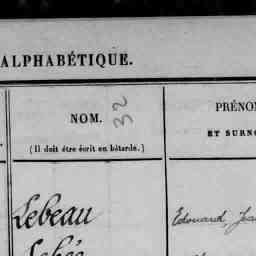 ALPHABÉTIQUE.
32
NOM.
(Il doit être écrit en bâtarde.)
PRÉNO
ET SURNO
Lebeau
Edouard, Jea